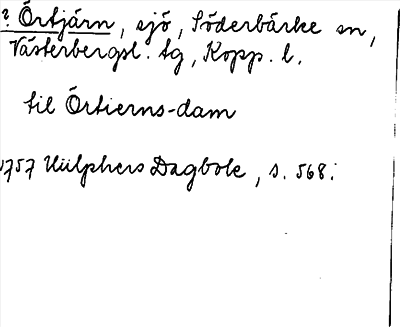 ? Örtjärn, sjö, Söderbärke sn,
Västerbergsl. tg, Kopp. l.
til Örtierns-dam
1757 Hülphers Dagbok, s. 568: